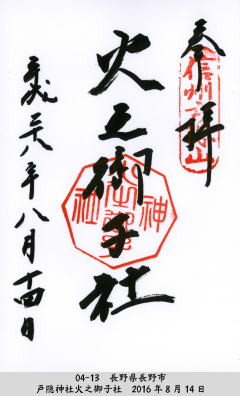 奉拝
信州戸隠山
火之御子社
神社
平成二十八年八月十四日
04-13 長野県長野市
戸隠神社火之御子社 2016年8月14日